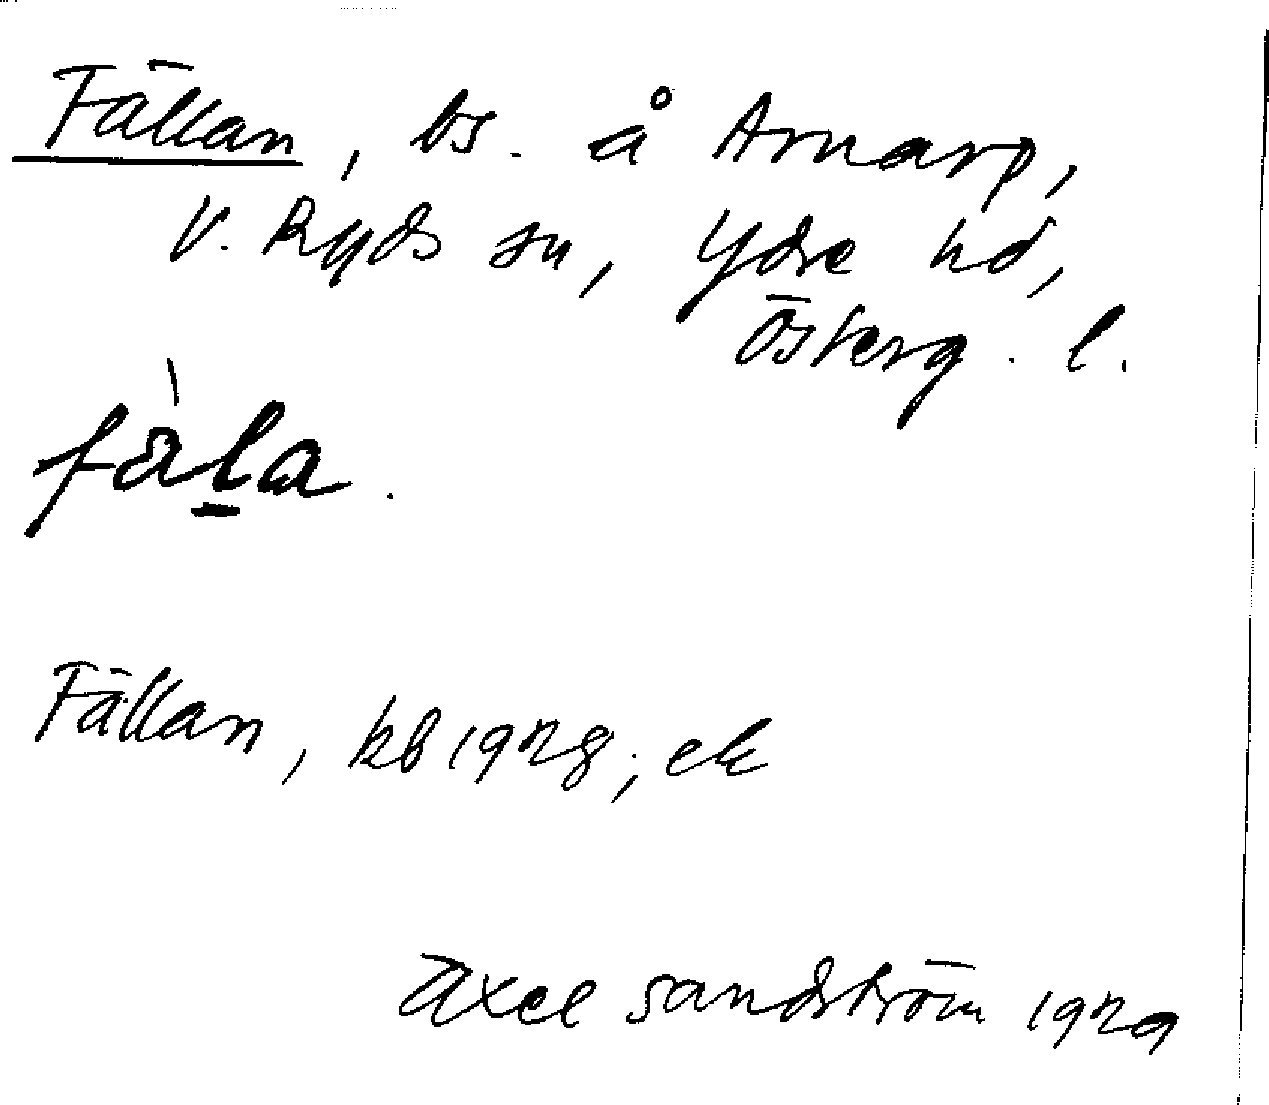 Fällan, bs. å Arnarp,
V. Ryds sn, Ydre hd,
Österg. l.
fàla.
Fällan, kb 1928; ek
Axel Sandström 1929